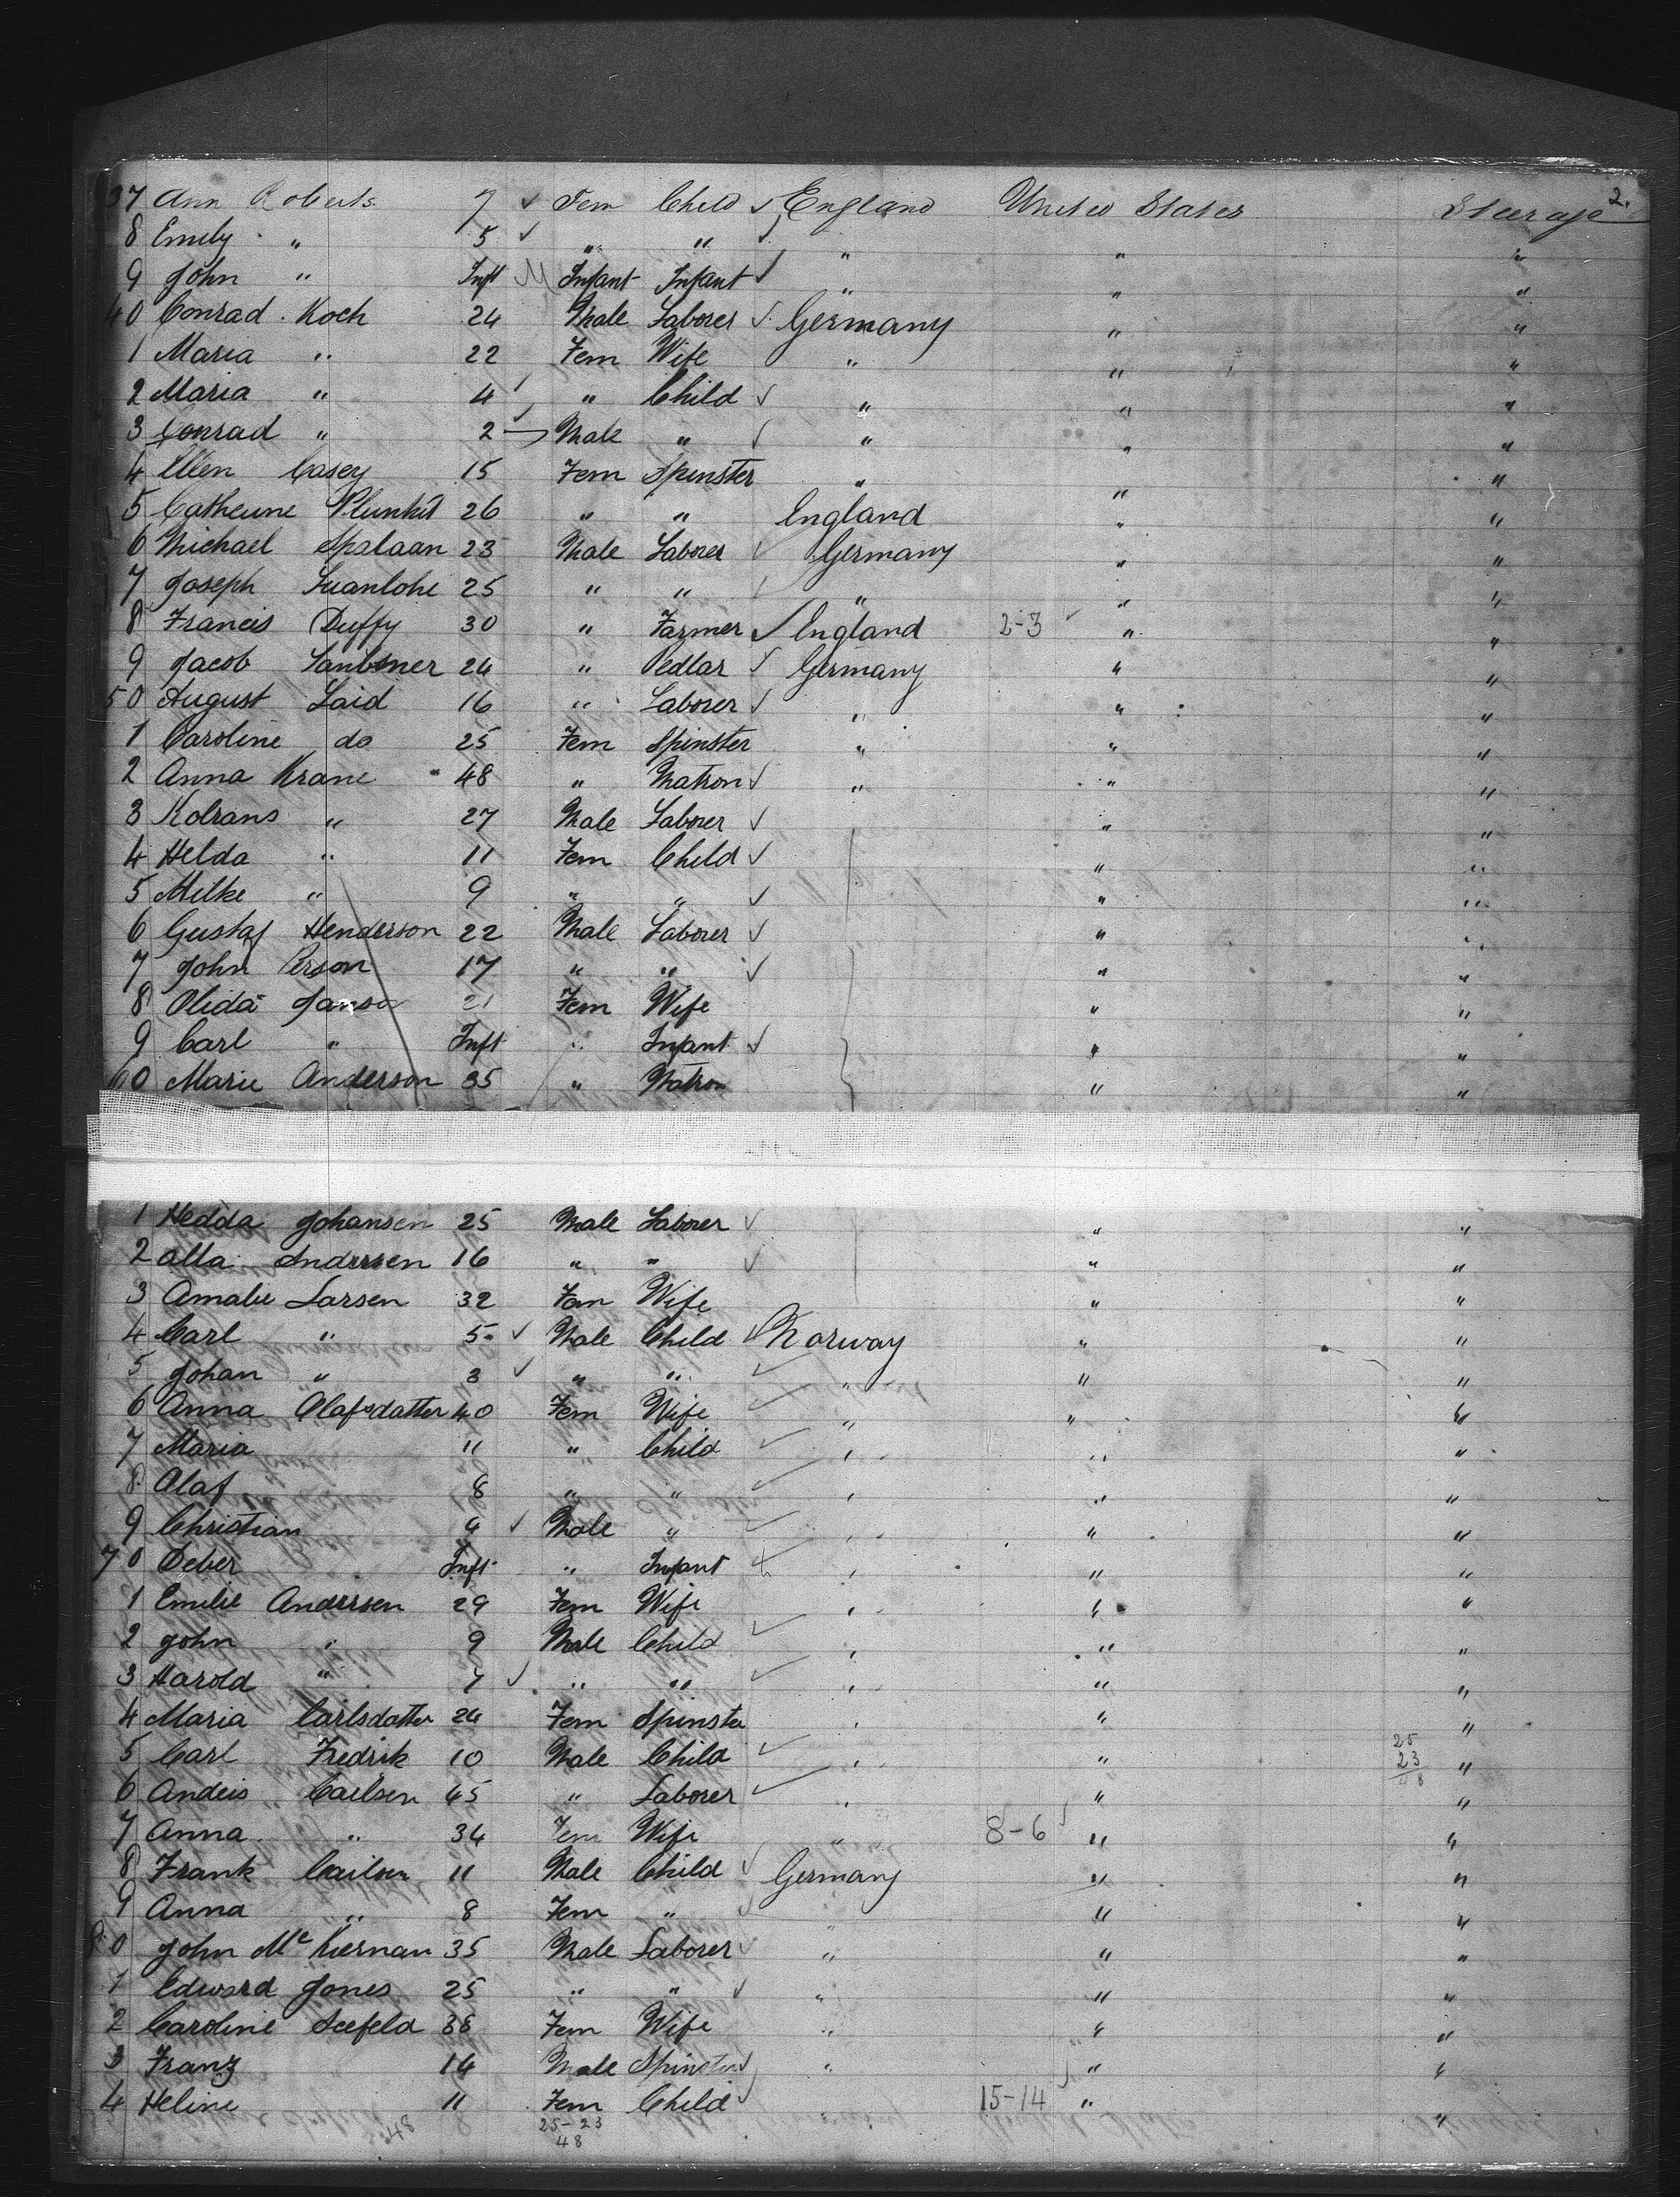 2.
37 Ann Roberts 7 ✓ Fem Child ✓ England United States Steerage
8 Emily " 5 ✓ " " ✓ " " "
9 John " Inft M Infant Infant ✓ " " "
40 Conrad Koch 24 Male Laborer ✓ Germany " "
1 Maria " 22 Fem Wife " " "
2 Maria " 4 ✓ " Child ✓ " " "
3 Conrad " 2 ✓ Male " ✓ " " "
4 Ellen Casey 15 Fem Spinster " " "
5 Catherine Plunkit 26 " " England " "
6 Michael Spalaan 23 Male Laborer ✓ Germany " "
7 Joseph 25 " " ✓ " " "
8 Francis Duffy 30 " Farmer ✓ England 2-3 ✓ " "
9 Jacob 24 " Pedlar ✓ Germany " "
50 August Laid 16 " Laborer ✓ " " "
1 Caroline do 25 Fem Spinster " " "
2 Anna Krane 48 " Matron ✓ " " "
3 Kolrans " 27 Male Laborer ✓ " "
4 Helda " 11 Fem Child ✓ " "
5 Milke " 9 " " ✓ " "
6 Gustaf Henderson 22 Male Laborer ✓ " "
7 John Person 17 " " ✓ " "
8 Olida Janson 21 Fem Wife " "
9 Carl " Inft " Infant ✓ " "
60 Marie Anderson 35 " Matron " "
1 Hedda Johansen 25 Male Laborer ✓ " "
2 Alla Andersen 16 " " ✓ " "
3 Amalie Larsen 32 Fem Wife " "
4 Carl " 5 ✓ Male Child ✓ Norway " "
5 Johan " 3 ✓ " " ✓ " " "
6 Anna Olafsdatter 40 Fem Wife ✓ " " "
7 Maria 11 " Child ✓ " " "
8 Olaf 8 " " ✓ " " "
9 Christian 4 ✓ Male " ✓ " " "
70 Peber Inft " Infant " " "
1 Emilie Andersen 29 Fem Wife " " "
2 John " 9 Male Child ✓ " " "
3 Harold " 7 ✓ " " ✓ " " "
4 Maria Carlsdatter 24 Fem Spinster " " "
5 Carl Fredrik 10 Male Child ✓ " " 25 23 48 "
6 Andeis Carlsen 45 " Laborer ✓ " " "
7 Anna " 34 Fem Wife " 8-6 ✓ " "
8 Frank Carlsen 11 Male Child ✓ Germany " "
9 Anna " 8 Fem " ✓ " " "
80 John McKiernan 35 Male Laborer ✓ " " "
1 Edward Jones 25 " " ✓ " " "
2 Caroline Seefeld 38 Fem Wife " " "
3 Franz 14 Male Spinster ✓ " " "
4 Heline 11 Fem Child ✓ 15-14 ✓ " "
48 25-23
48